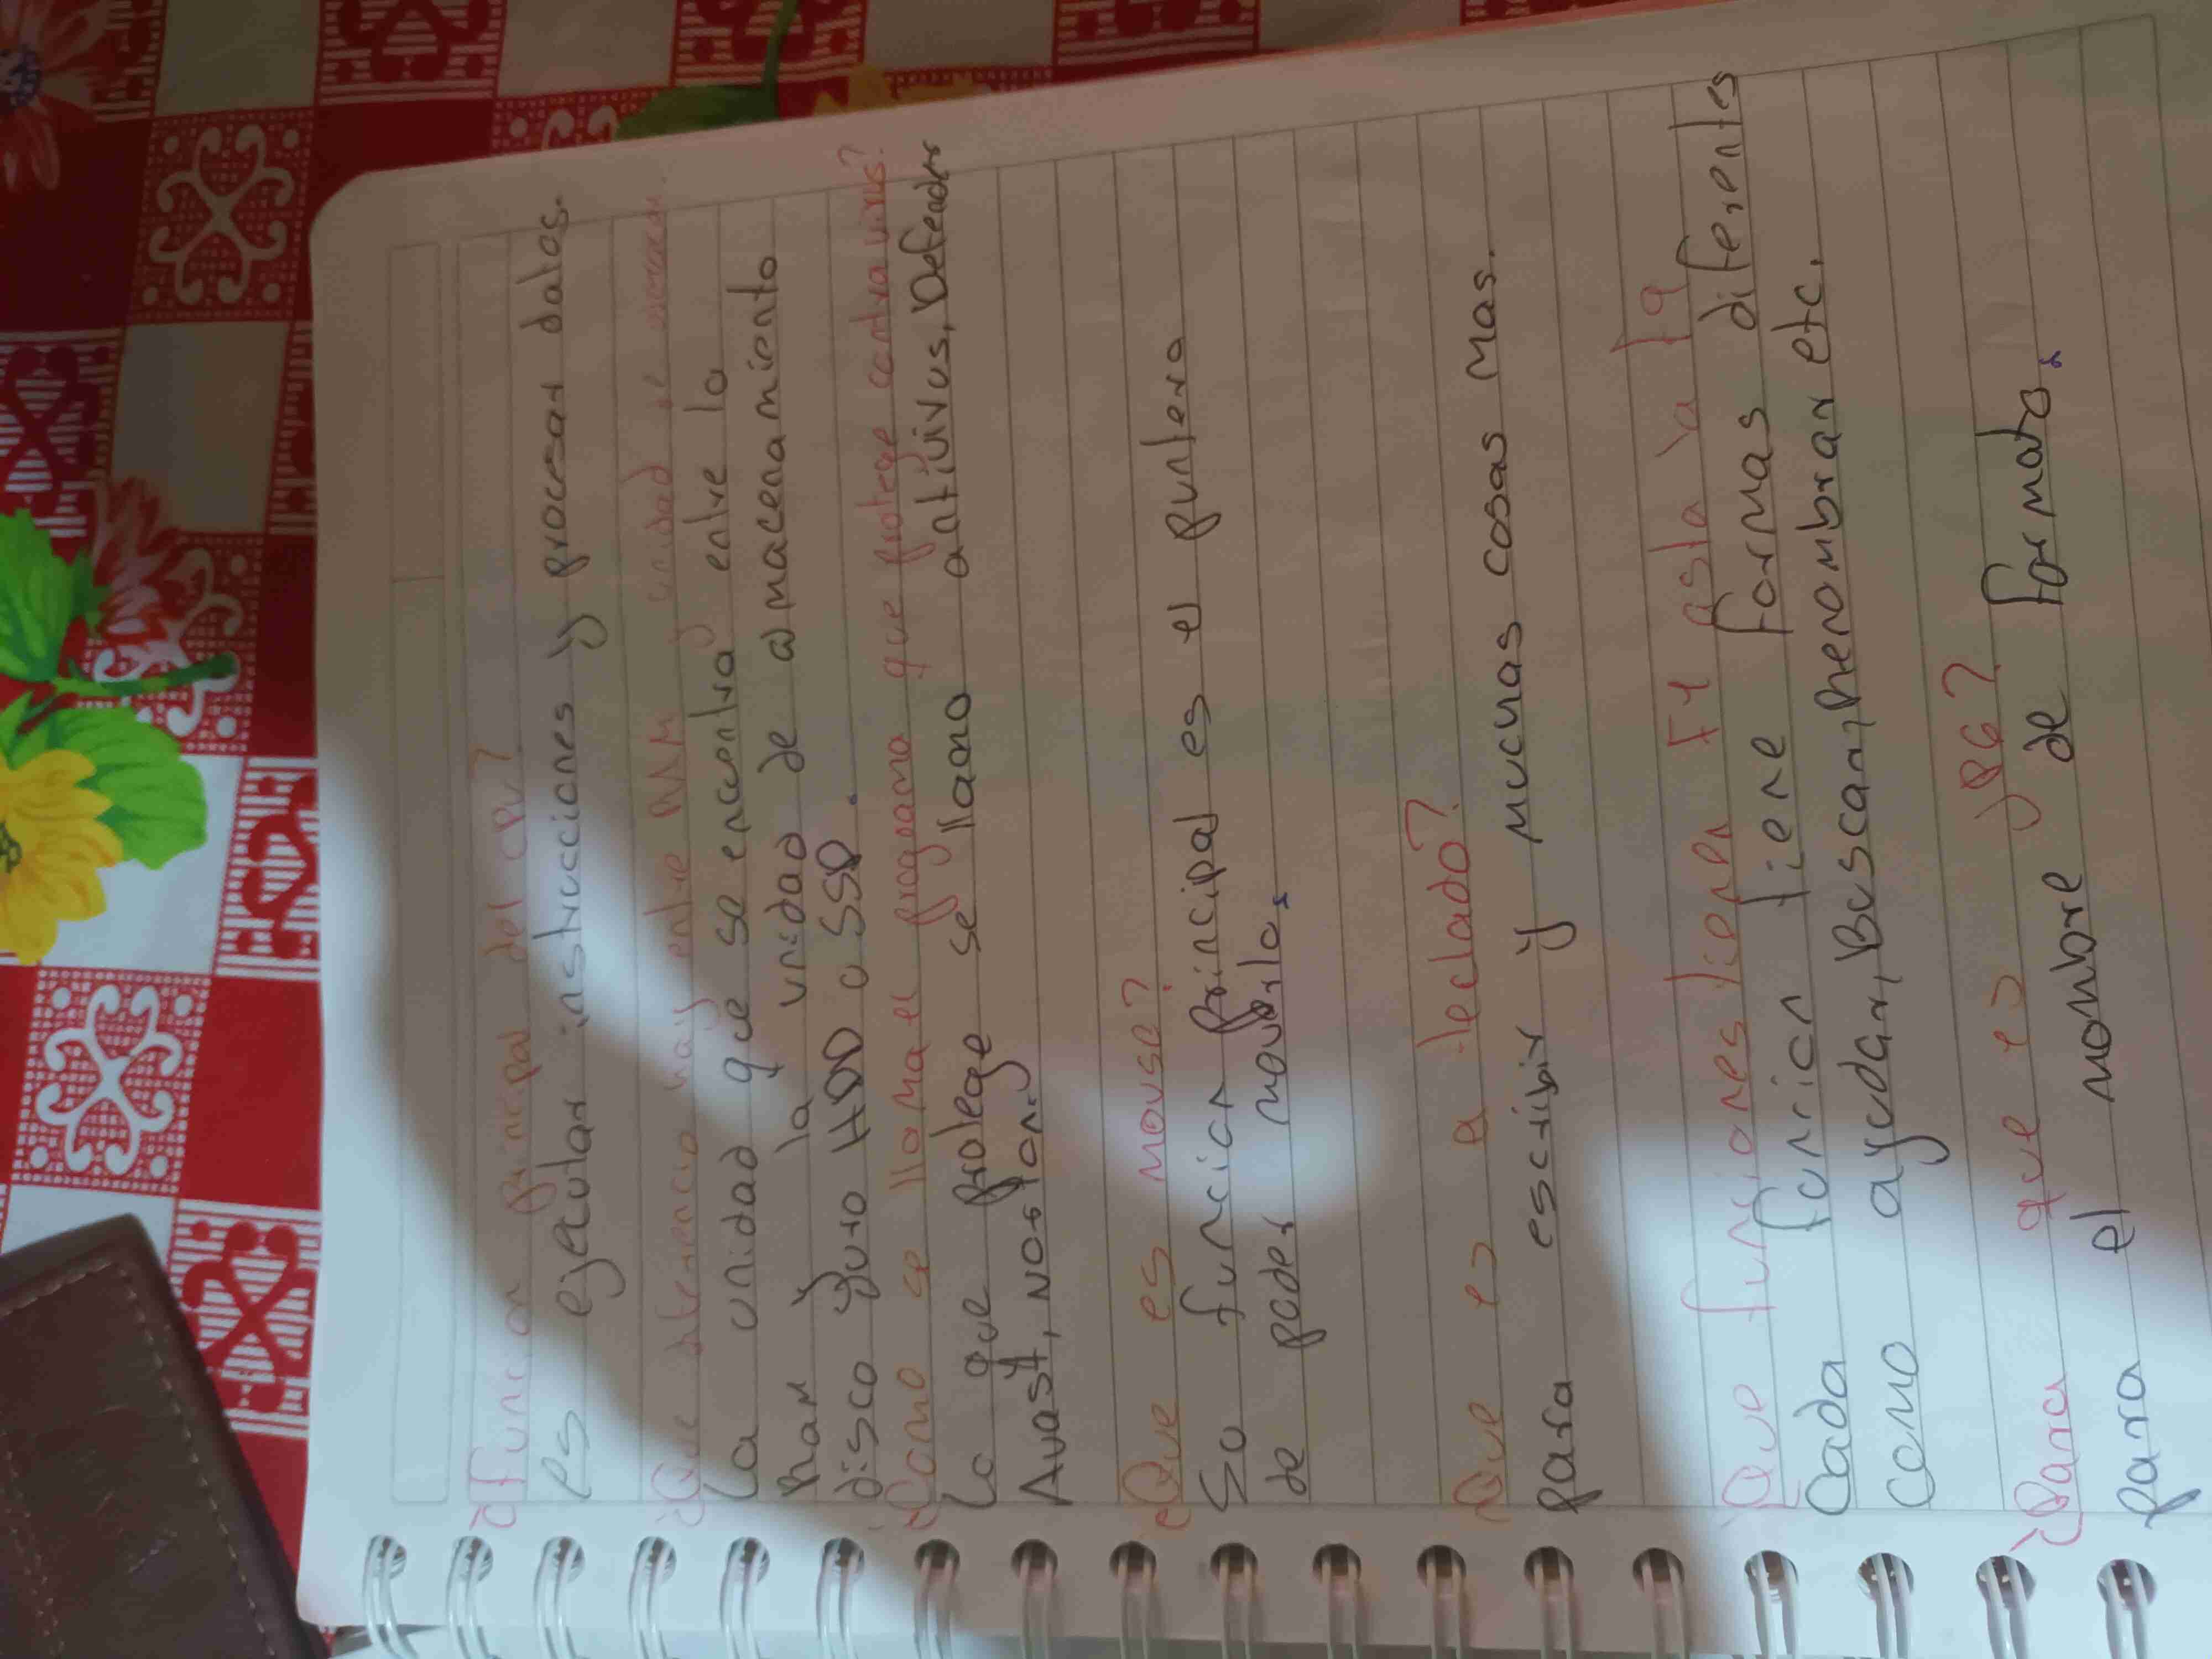 ¿Funcion principal del CPU?
es ejecutar instrucciones y procesar datos.
¿Que diferencia hay entre RAM y unidad de
La unidad que se encentra entre la
Ram y la unidad de almacenamiento
disco duro HDD o SSD.
¿Como se llama el programa que protege contra virus?
Lo que protege se llama antivirus, Defender
Avast, Norton.
¿Que es mouse?
Su funcion principal es el puntero
de poder moverlo.
¿Que es a teclado?
para escribir y muchas cosas mas.
¿Que funsiones tienen F1 asta la F9
Cada funcion tiene formas diferentes
como ayudar, Buscar, Renombrar etc.
¿Para que es JPG?
para el nombre de formato.